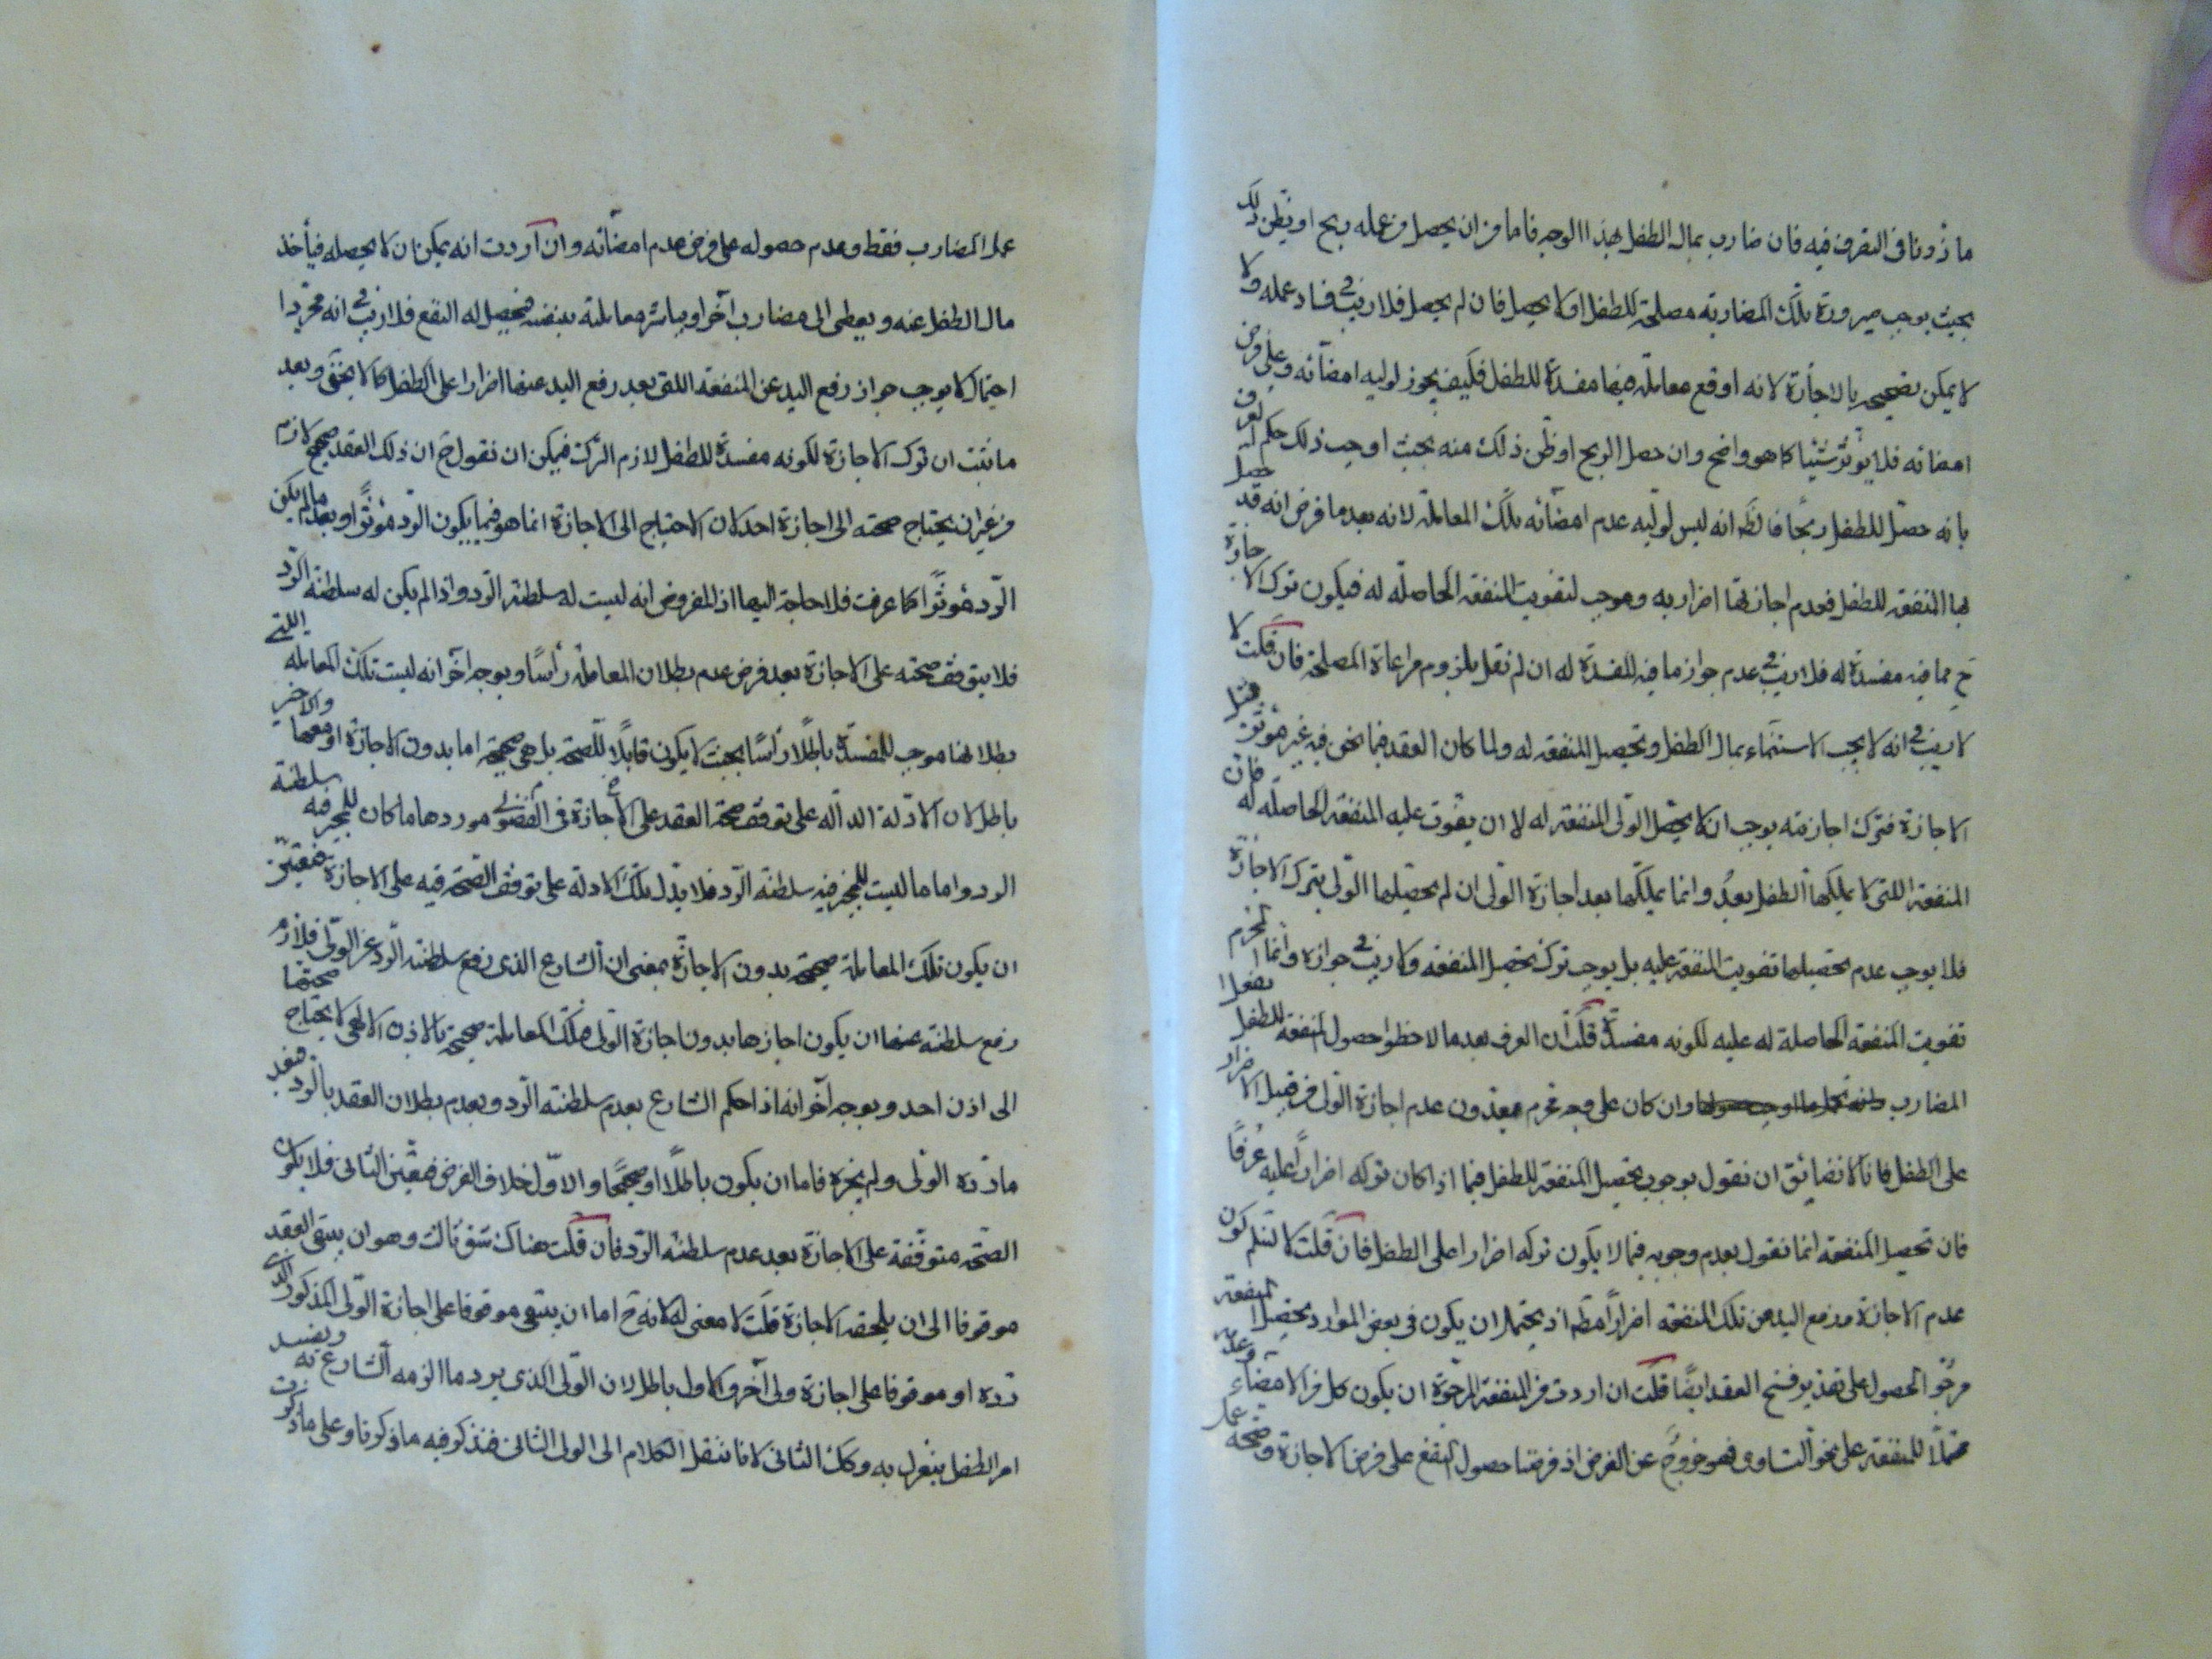 ماذونا فى التصرف فيه فان ضارب بمال الطفل بهذا الوجه فاما من ان يحصل من عمله ربح او يظن ذلك
بحيث يوجب صيرورة تلك المضاربه مصلحة للطفل او لا يحصل فان لم يحصل فلا ريب فى فساد عمله ولا
لا يمكن تصحيحه بالاجازة لانه اوقع معاملة فيها مفسدة للطفل فكيف يجوز لوليه امضائه وعلى فرض
امضائه فلا يؤثر شيئا كما هو واضح وان حصل الربح او ظن ذلك منه بحيث اوجب ذلك حكم العرف
بانه حصل للطفل ربحا فالظ انه ليس لوليه عدم امضائه تلك المعاملة لانه بعد ما فرض انه قد حصل
بها المنفعة للطفل فعدم اجازتها اضرار به وموجب لتفويت المنفعة الحاصله له فيكون ترك الاجازة
ح مما فيه مفسدة له فلا ريب فى عدم جواز ما فيه المفسدة له ان لم نقل بلزوم مراعاة المصلحة فان قلت لا
لا ريب فى انه لا يجب الاستنماء بمال الطفل وتحصيل المنفعة له ولما كان العقد فيما نحن فيه غير مؤثر قبل
الاجازة فترك اجازته يوجب ان لا يحصل الولى المنفعة له لا ان يفوت عليه المنفعة الحاصلة له فان
المنفعة اللتى لا يملكها الطفل بعد وانما يملكها بعد اجازة الولى ان لم يحصلها الولى بترك الاجازة
فلا يوجب عدم تحصيلها تفويت المنفعة عليه بل يوجب ترك تحصيل المنفعه ولا ريب فى جوازه وانما المحرم
تفويت المنفعة الحاصلة له عليه لكونه مفسدة قلت ان العرف بعد ما لاحظوا حصول المنفعة للطفل بفعل
المضارب وان كان على وجه محرم يعدون عدم اجازة الولى من قبيل الاضرار
على الطفل فانا لا نضايق ان نقول بوجوب تحصيل المنفعة للطفل فيما اذا كان تركه اضرارا عليه عرفا
فان تحصيل المنفعه انما نقول بعدم وجوبه فيما لا يكون تركه اضرارا على الطفل فان قلت لا نسلم كون
عدم الاجازة ورفع اليد من تلك المنفعه اضرارا مطه اذ يحتمل ان يكون فى بعض الموارد تحصيل المنفعة
مرجو الحصول على تقدير فسخ العقد ايضا قلت ان اردت من المنفعة المرجوة ان يكون كل من الامضاء وعدمه
محصلا للمنفعة على نحو التساوى فهو خروج عن الفرض اذ فرضنا حصول النفع على فرض الاجازة وصحة عمل
عمل المضارب فقط وعدم حصوله على فرض عدم امضائه وان اردت انه يمكن ان لا يحصله فيأخذ
مال الطفل عنه ويعطى الى مضارب آخر او يباشر معاملته بنفسه فيحصل له النفع فلا ريب فى انه مجرد
احتمال لا يوجب جواز رفع اليد عن المنفعة اللتى بعد رفع اليد عنها اضرارا على الطفل كما لا يخفى وبعد
ما ثبت ان ترك الاجازة لكونه مفسدة للطفل لازم الترك فيمكن ان نقول ح ان ذلك العقد صحيح لازم
من غير ان يحتاج صحته الى اجازة احد لان الاحتياج الى الاجازة انما هو فيما يكون الرد مؤثرا وبعد ما لم يكن
الرد مؤثرا كما عرفت فلا حاجة اليها اذ المفروض انه ليست له سلطنة الرد واذا لم يكن له سلطنة الرد
فلا يتوقف صحته على الاجازة بعد فرض عدم بطلان المعاملة رأسا وبوجه آخر انه ليست تلك المعاملة اللتى
بطلانها موجب للمفسدة باطلا رأسا بحيث لا يكون قابلا للصحة بل هى صحيحة اما بدون الاجازة او معها والاخير
باطل لان الادلة الدالة على توقف صحة العقد على الاجازة فى الفضولى موردها ما كان للمجيز فيه سلطنة
الرد واما ما ليست للمجيز فيه سلطنة الرد فلا يدل تلك الادلة على توقف الصحة فيه على الاجازة فتعين
ان يكون تلك المعاملة صحيحة بدون الاجازة بمعنى ان الشارع الذى رفع سلطنة الرد عن الولى فلازم
رفع سلطنته عنها ان يكون اجازها بدون اجازة الولى فتلك المعاملة صحيحة بالاذن الالهى لا يحتاج صحتها
الى اذن احد وبوجه آخر انه اذا حكم الشارع بعدم سلطنة الرد وبعدم بطلان العقد بالرد فبعد
ما رده الولى ولم يجزه فاما ان يكون باطلا او صحيحا والاول خلاف الفرض فتعين الثانى فلا يكون
الصحة متوقفة على الاجازة بعد عدم سلطنة الرد فان قلت هناك شق ثالث وهو ان يبقى العقد
موقوفا الى ان يلحقه الاجازة قلت لا معنى له لانه ح اما ان يبقى موقوفا على اجازة الولى المذكور الذى
رده او موقوفا على اجازة ولى آخر والاول باطل لان الولى الذى يرد ما الزمه الشارع به ويفسد
امر الطفل ينعزل به وكذا الثانى لانا ننقل الكلام الى الولى الثانى فنذكر فيه ما ذكرنا وعلى ما ذكرت